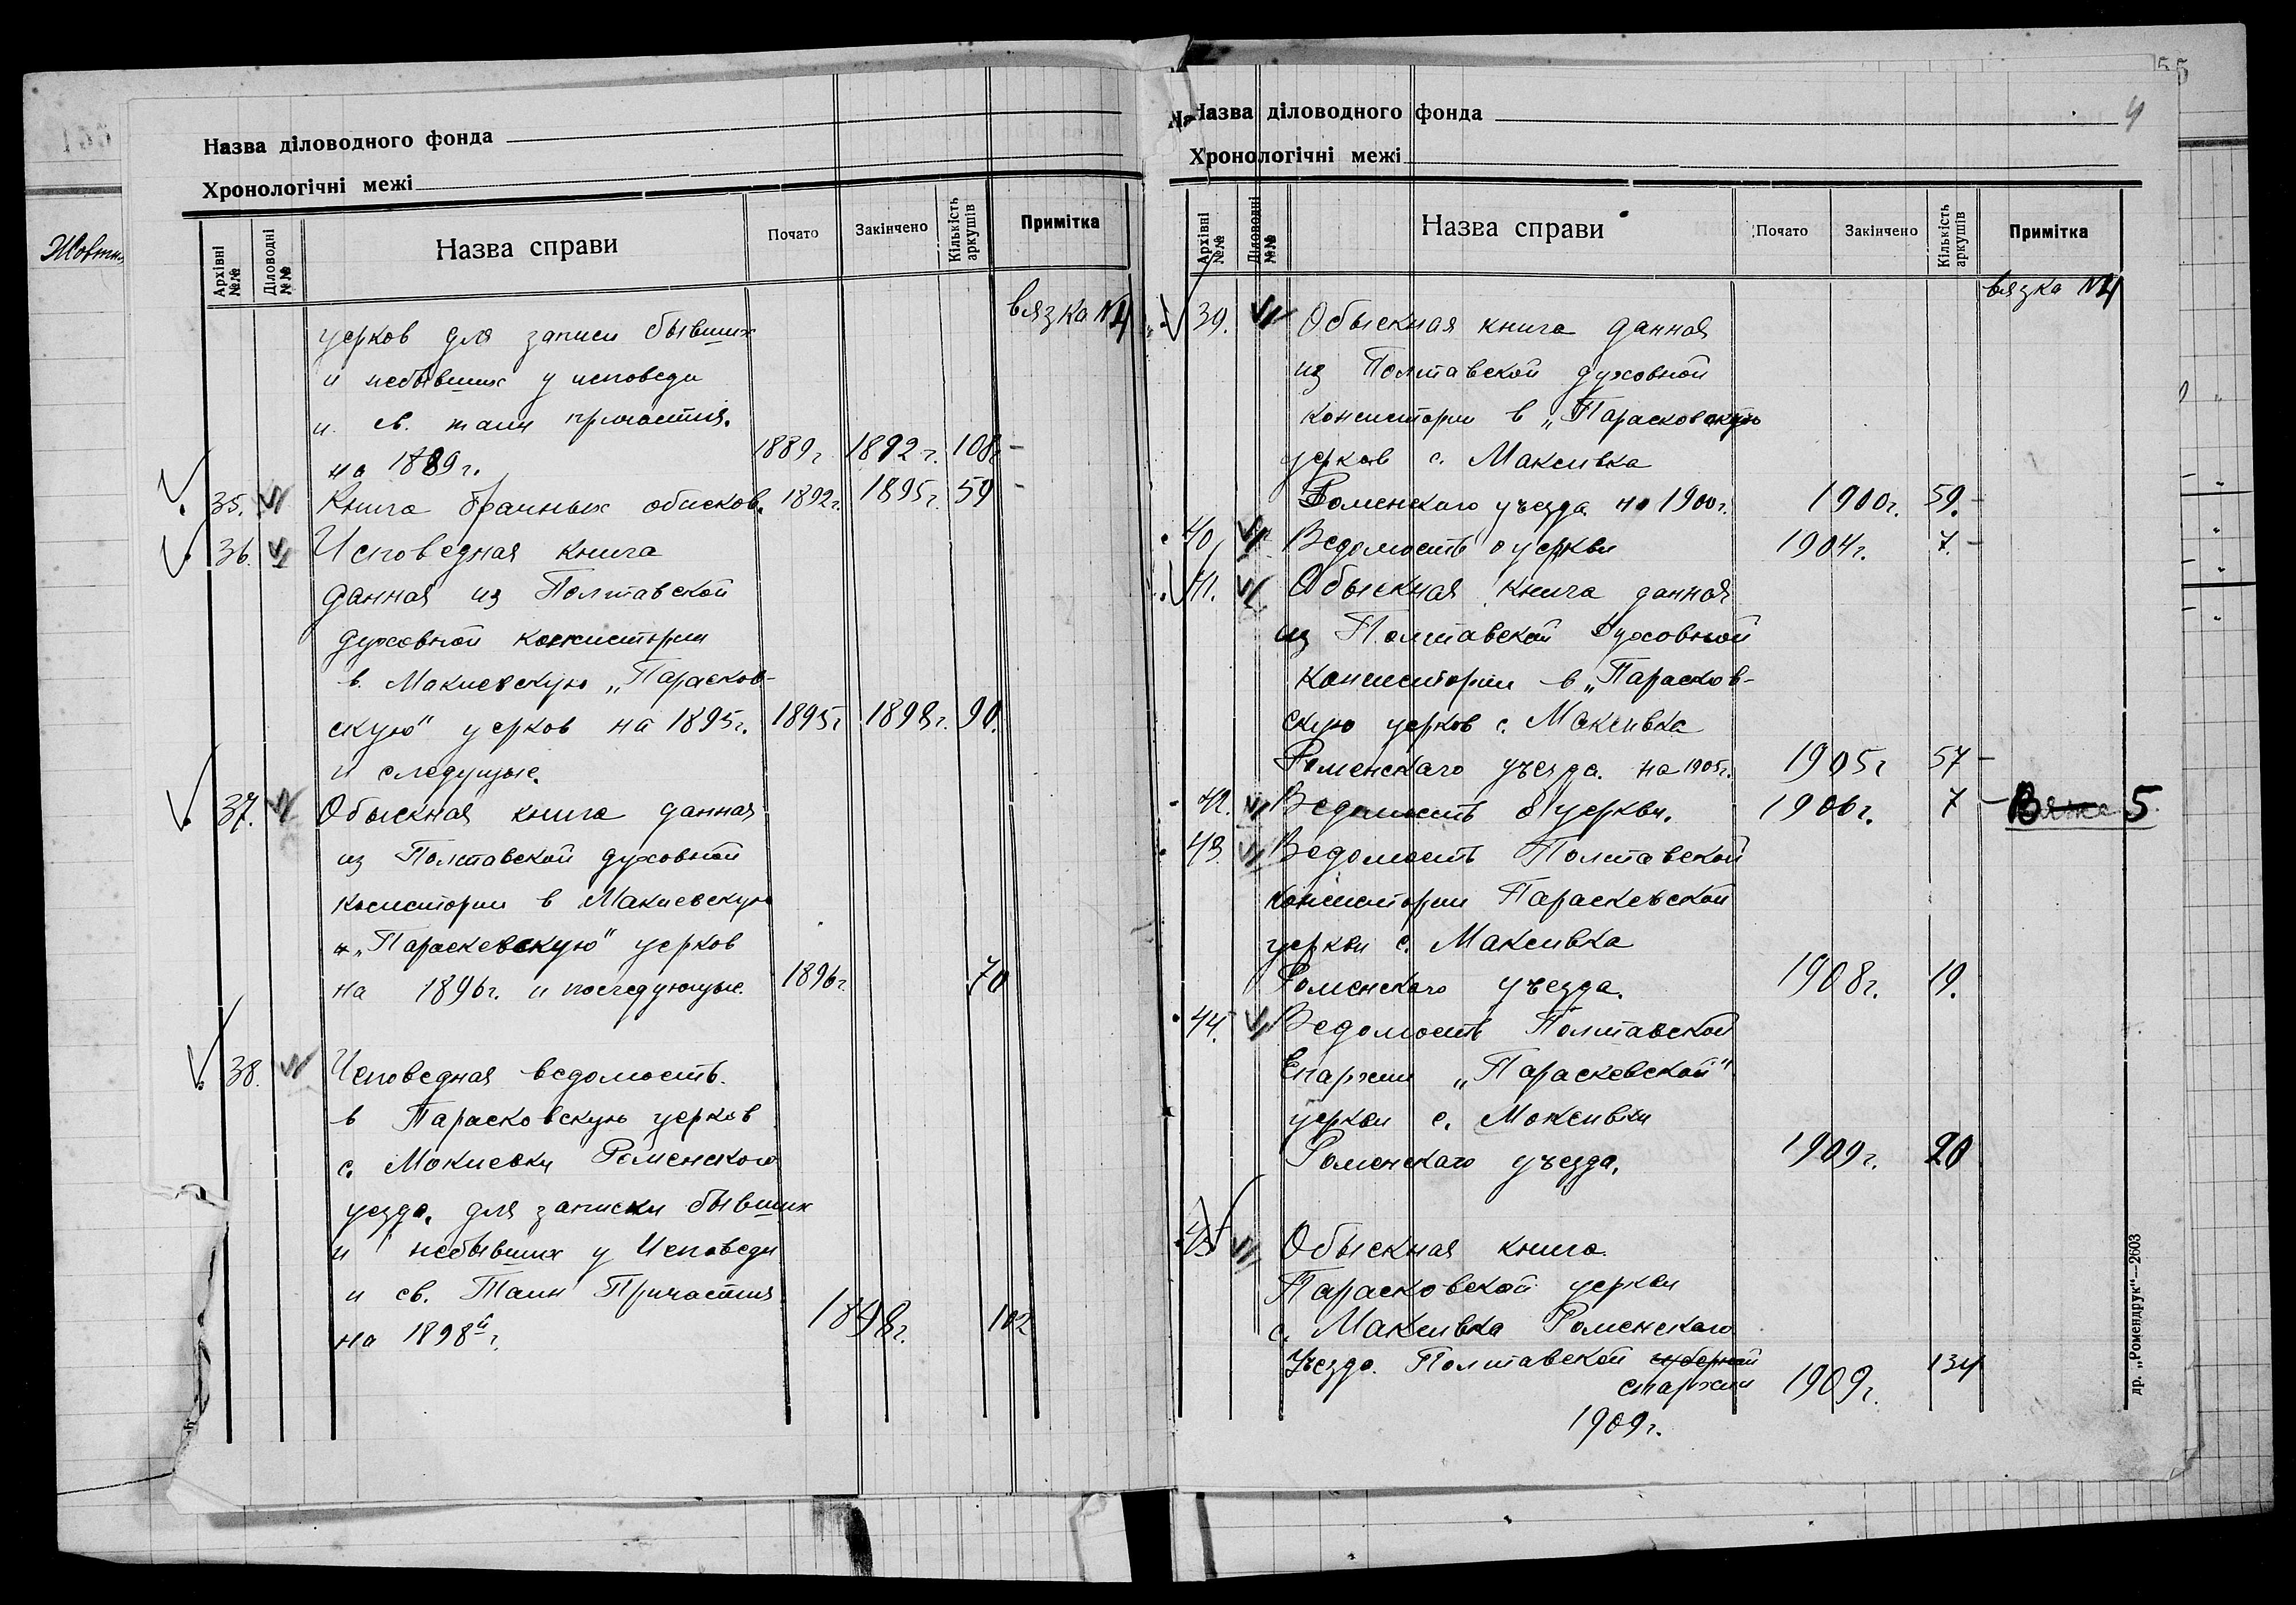 Назва діловодного фонда
Хронологічні межі
Архівні №№
Діловодні №№
Назва справи
Почато
Закінчено
Кількість аркушів
Примітка
вязка №4
церков для записи бывших
и небывших у исповеди
и св. таин причастия.
на 1889г. 1889г 1892г. 108 -
35. Книга брачных обисков. 1892г. 1895г. 59 -
36. Исповедная книга
данная из Полтавской
духовной консистории
в. Макиевскую „Парасков-
скую" церков на 1895г. 1895г 1898г. 90.
и следущые.
37. Обыскная книга данная
из Полтавской духовной
косистории в Макиевскую
„Параскевскую" церков
на 1896г. и последующые. 1896г. 70
38. Исповедная ведомость.
в Парасковскую церков
с. Макиевки Роменского
уезда. для записки бывших
и небывших у Исповеди
и св. Таин Причастия
на 1898й г. 1898г. 102
Жовтн
Назва діловодного фонда
4
Хронологічні межі
Архівні №№
Діловодні №№
Назва справи
Почато
Закінчено
Кількість аркушів
Примітка
вязка №4
39. Обыскная книга данная
из Полтавской духовной
консистории в „Парасковскую
церков с. Максивка
Роменскаго уъезда на 1900г. 1900г. 59. -
40. Ведомость о церкви 1904г. 7. -
41. Обыскная книга данная
из Полтавской Духовной
Консистории в „Парасков-
скую церков с. Максивка
Роменскаго уъезда. на 1905г. 1905г 57 -
42. Ведомость о церкви. 1906г. 7 - Вяже 5
43. Ведомость Полтавской
консистории Параскевской
церкви с. Максивка
Роменскаго уъезда. 1908г. 19.
44. Ведомость Полтавской
Епархии „Параскевской"
церкви с. Максивки
Роменскаго уъезда. 1909г. 20
45 Обыскная книга
Парасковской церкви
с. Максивка Роменскаго
Уъезда. Полтавской губерний 134
епархии 1909г.
1909г.
др. „Ромендрук"—2603